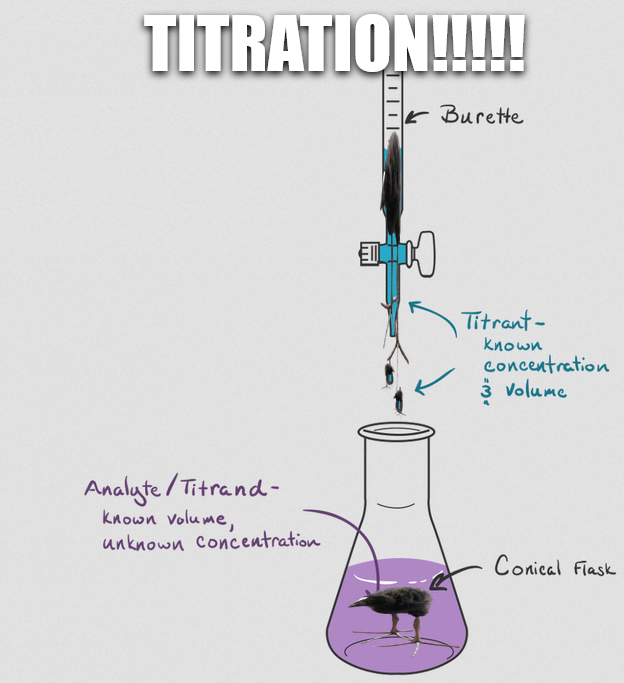 TITRATION!!!!!
Burette
Titrant-
known
concentration
& Volume
Analyte/Titrand-
known volume,
unknown concentration
Conical Flask